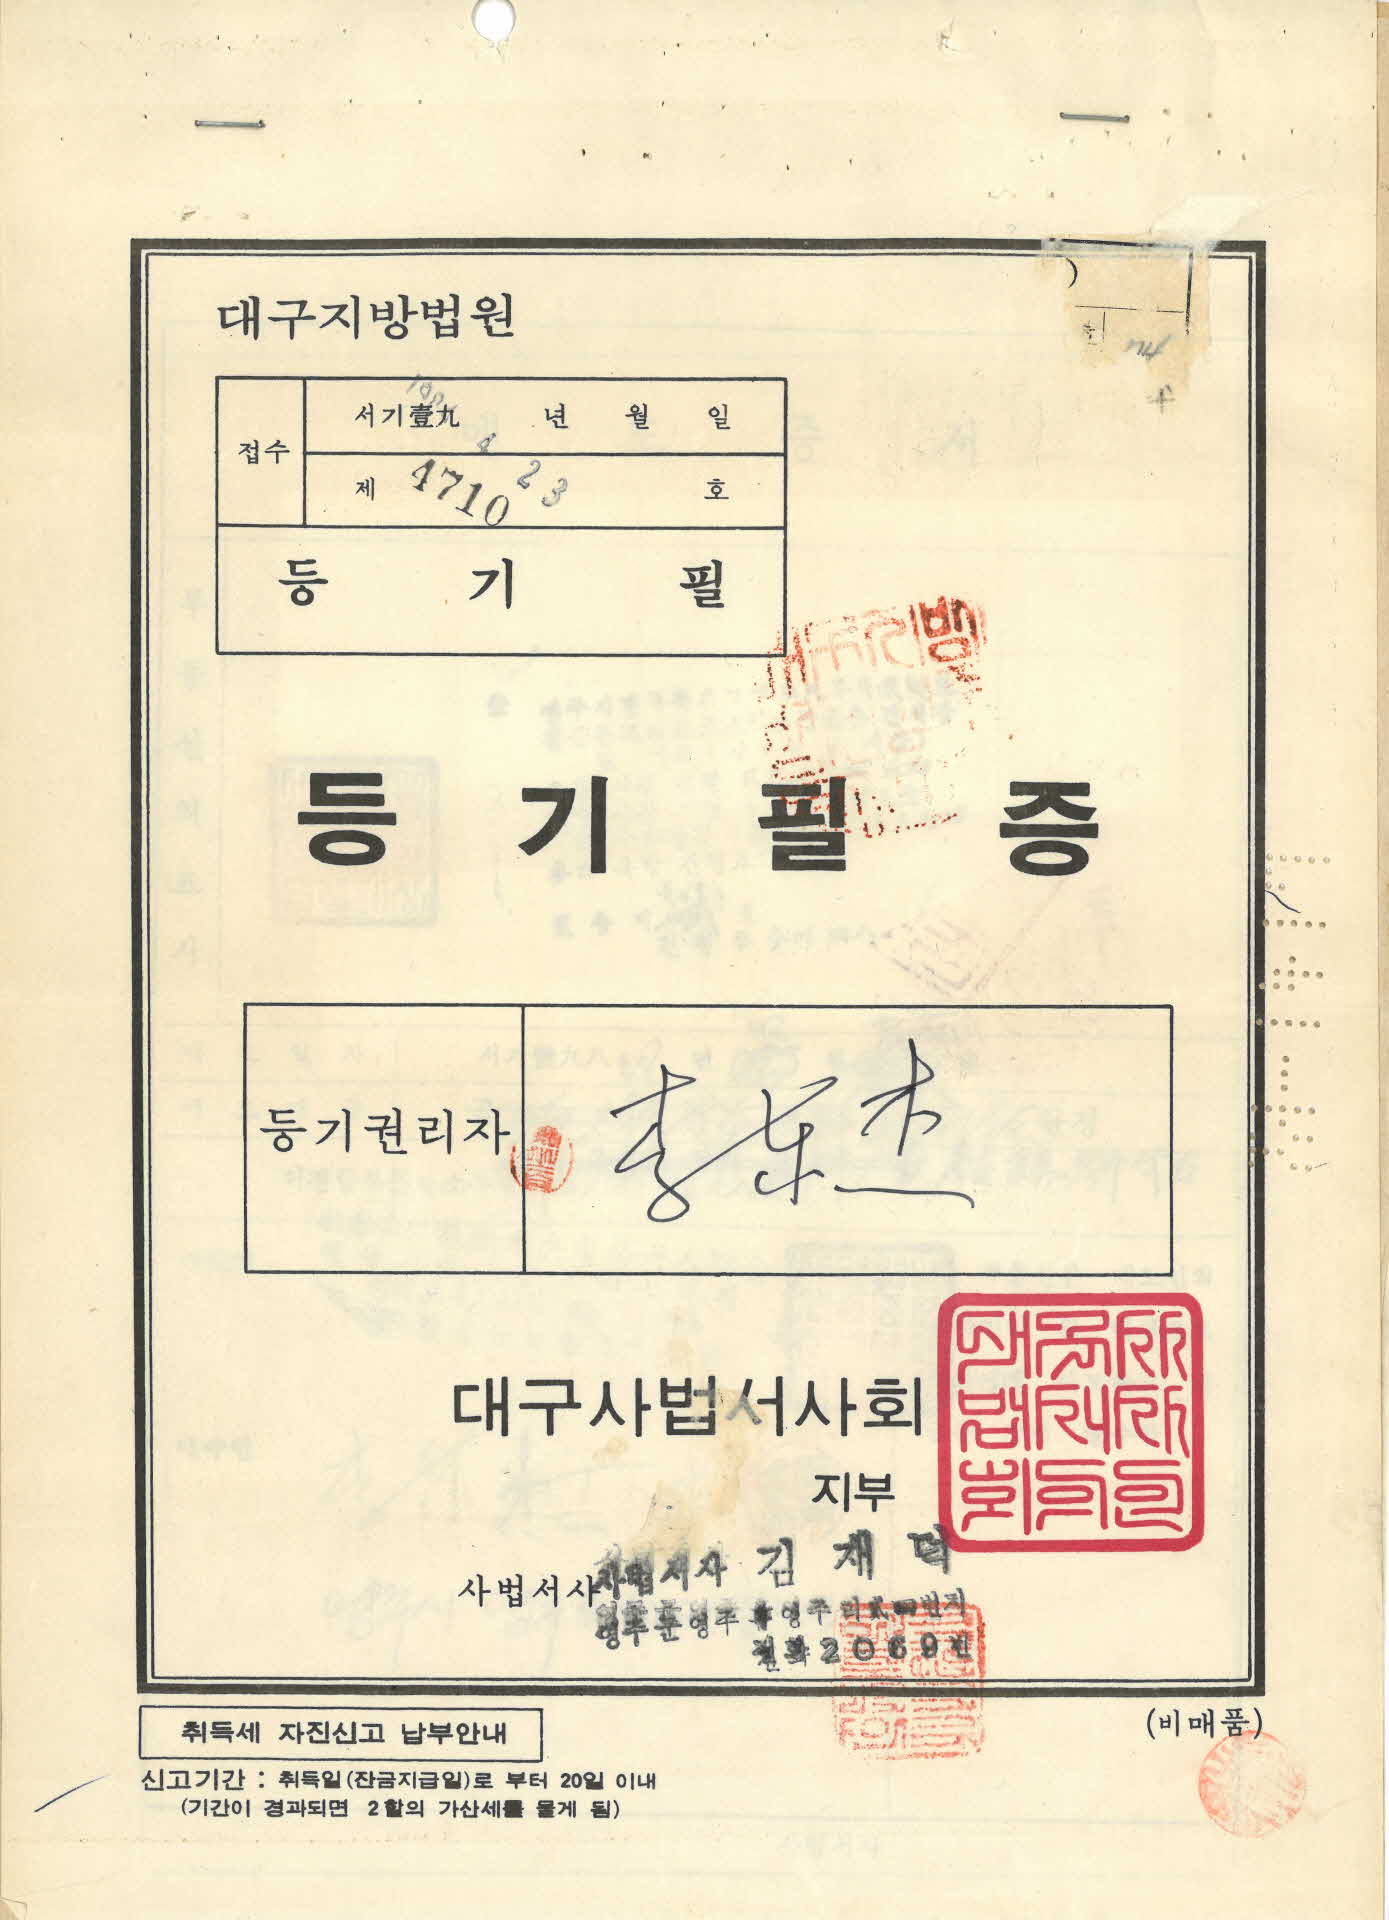 대구지방법원
접수
서기壹九 년 월 일
4 23
제 4710 호
등 기 필
등 기 필 증
등기권리자
李东杰
대구사법서사회
지부
사법서사
사법서사 김재덕
영주군영주읍영주리 번지
전화2069번
(비매품)
취득세 자진신고 납부안내
신고기간 : 취득일(잔금지급일)로 부터 20일 이내
(기간이 경과되면 2할의 가산세를 물게 됨)